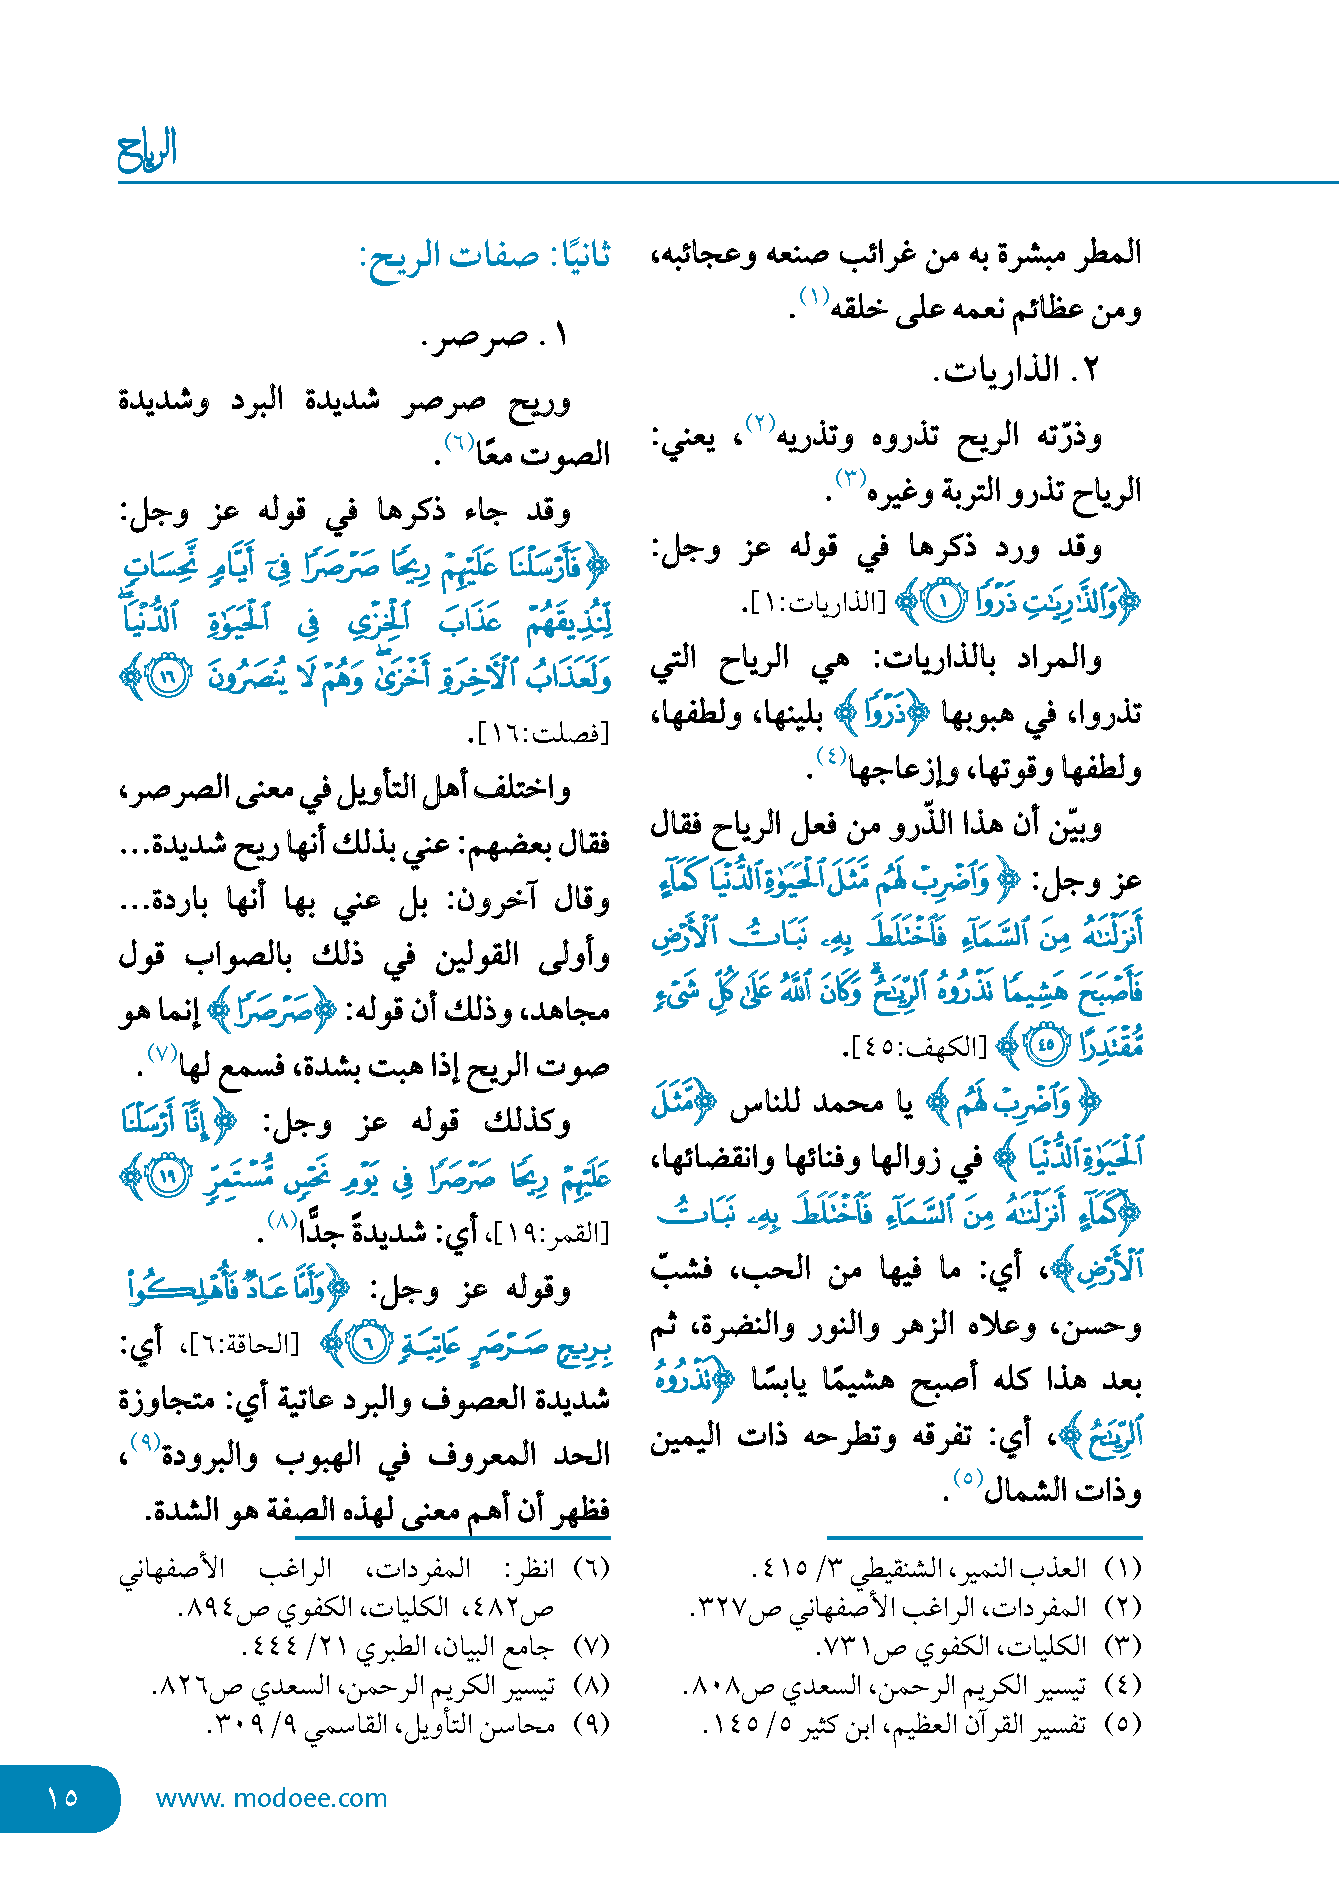 الرياح
المطر مبشرة به من غرائب صنعه وعجائبه،
ومن عظائم نعمه على خلقه(١).
٢. الذاريات.
وذرّته الريح تذروه وتذريه(٢)، يعني:
الرياح تذرو التربة وغيره(٣).
وقد ورد ذكرها في قوله عز وجل:
﴿وَٱلذَّٰرِيَٰتِ ذَرْوًا ١﴾ [الذاريات:١].
والمراد بالذاريات: هي الرياح التي
تذروا، في هبوبها ﴿ذَرْوًا﴾ بلينها، ولطفها،
ولطفها وقوتها، وإزعاجها(٤).
وبيّن أن هذا الذّرو من فعل الرياح فقال
عز وجل: ﴿وَٱضْرِبْ لَهُم مَّثَلَ ٱلْحَيَوٰةِ ٱلدُّنْيَا كَمَآءٍ
أَنزَلْنَٰهُ مِنَ ٱلسَّمَآءِ فَٱخْتَلَطَ بِهِۦ نَبَاتُ ٱلْأَرْضِ
فَأَصْبَحَ هَشِيمًا تَذْرُوهُ ٱلرِّيَٰحُ ۗ وَكَانَ ٱللَّهُ عَلَىٰ كُلِّ شَىْءٍ
مُّقْتَدِرًا ٤٥﴾ [الكهف:٤٥].
﴿وَٱضْرِبْ لَهُم﴾ يا محمد للناس ﴿مَّثَلَ
ٱلْحَيَوٰةِ ٱلدُّنْيَا﴾ في زوالها وفنائها وانقضائها،
﴿كَمَآءٍ أَنزَلْنَٰهُ مِنَ ٱلسَّمَآءِ فَٱخْتَلَطَ بِهِۦ نَبَاتُ
ٱلْأَرْضِ﴾، أي: ما فيها من الحب، فشبّ
وحسن، وعلاه الزهر والنور والنضرة، ثم
بعد هذا كله أصبح هشيمًا يابسًا ﴿تَذْرُوهُ
ٱلرِّيَٰحُ﴾، أي: تفرقه وتطرحه ذات اليمين
وذات الشمال(٥).
(١) العذب النمير، الشنقيطي ٣/ ٤١٥.
(٢) المفردات، الراغب الأصفهاني ص٣٢٧.
(٣) الكليات، الكفوي ص٧٣١.
(٤) تيسير الكريم الرحمن، السعدي ص٨٠٨.
(٥) تفسير القرآن العظيم، ابن كثير ٥/ ١٤٥.
ثانيًا: صفات الريح:
١. صرصر.
وريح صرصر شديدة البرد وشديدة
الصوت معًا(٦).
وقد جاء ذكرها في قوله عز وجل:
﴿فَأَرْسَلْنَا عَلَيْهِمْ رِيحًا صَرْصَرًا فِىٓ أَيَّامٍ نَّحِسَاتٍ
لِّنُذِيقَهُمْ عَذَابَ ٱلْخِزْىِ فِى ٱلْحَيَوٰةِ ٱلدُّنْيَا ۖ
وَلَعَذَابُ ٱلْأَخِرَةِ أَخْزَىٰ ۖ وَهُمْ لَا يُنصَرُونَ ١٦﴾
[فصلت:١٦].
واختلف أهل التأويل في معنى الصرصر،
فقال بعضهم: عني بذلك أنها ريح شديدة...
وقال آخرون: بل عني بها أنها باردة...
وأولى القولين في ذلك بالصواب قول
مجاهد، وذلك أن قوله: ﴿صَرْصَرًا﴾ إنما هو
صوت الريح إذا هبت بشدة، فسمع لها(٧).
وكذلك قوله عز وجل: ﴿إِنَّآ أَرْسَلْنَا
عَلَيْهِمْ رِيحًا صَرْصَرًا فِى يَوْمِ نَحْسٍ مُّسْتَمِرٍّ ١٩﴾
[القمر:١٩]، أي: شديدةً جدًّا(٨).
وقوله عز وجل: ﴿وَأَمَّا عَادٌ فَأُهْلِكُوا۟
بِرِيحٍ صَرْصَرٍ عَاتِيَةٍ ٦﴾ [الحاقة:٦]، أي:
شديدة العصوف والبرد عاتية أي: متجاوزة
الحد المعروف في الهبوب والبرودة(٩)،
فظهر أن أهم معنى لهذه الصفة هو الشدة.
(٦) انظر: المفردات، الراغب الأصفهاني
ص٤٨٢، الكليات، الكفوي ص٨٩٤.
(٧) جامع البيان، الطبري ٢١/ ٤٤٤.
(٨) تيسير الكريم الرحمن، السعدي ص٨٢٦.
(٩) محاسن التأويل، القاسمي ٩/ ٣٠٩.
www. modoee.com
١٥